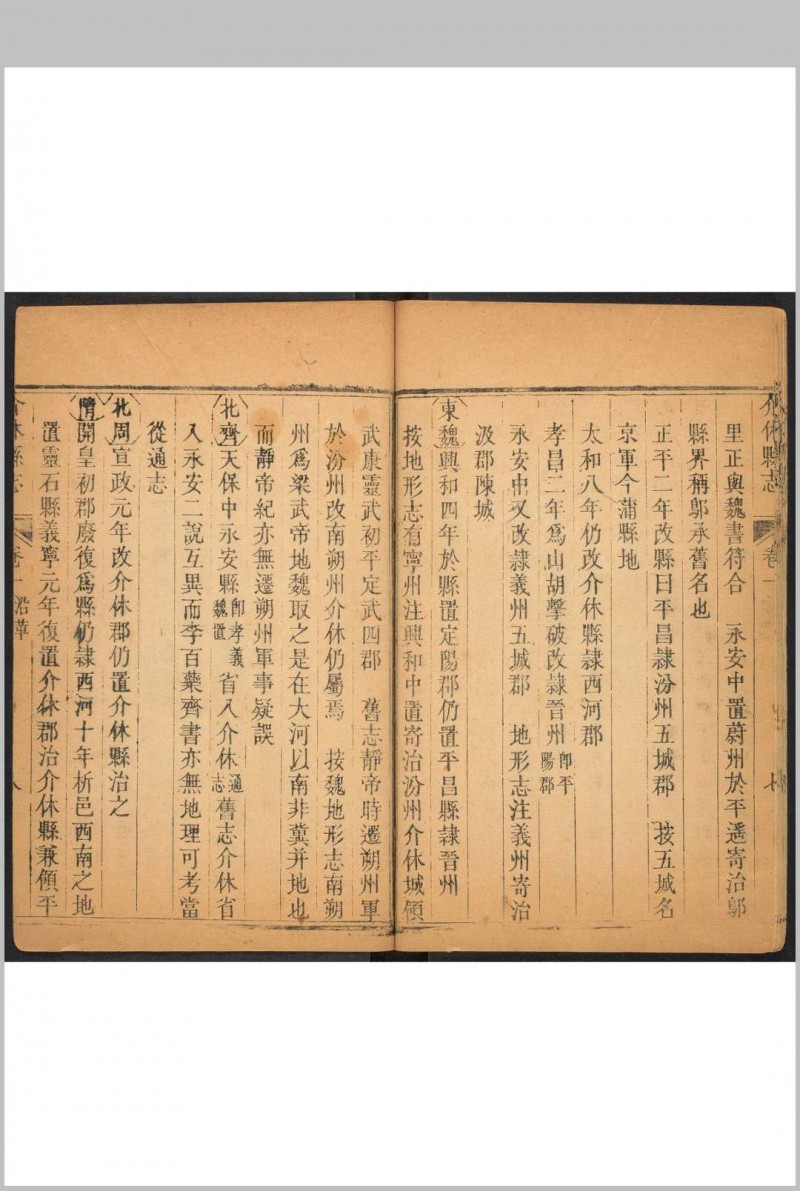 介休縣志 卷一 七
里正與魏書符合 永安中置蔚州於平遥寄治鄔
縣界稱鄔承舊名也
正平二年改縣曰平昌隷汾州五城郡 按五城名
京軍今蒲縣地
太和八年仍改介休縣隷西河郡
孝昌二年爲山胡擊破改隷晉州卽平陽郡
永安中又改隷義州五城郡 地形志注義州寄治
汲郡陳城
東魏興和四年於縣置定陽郡仍置平昌縣隷晉州
按地形志有寧州注興和中置寄治汾州介休城領
武康靈武初平定武四郡 舊志靜帝時遷朔州軍
於汾州改南朔州介休仍屬焉 按魏地形志南朔
州爲梁武帝地魏取之是在大河以南非冀并地也
而靜帝紀亦無遷朔州軍事疑誤
北齊天保中永安縣卽孝義魏置省入介休通志舊志介休省
入永安二說互異而李百藥齊書亦無地理可考當
從通志
北周宣政元年改介休郡仍置介休縣治之
隋開皇初郡廢復爲縣仍隷西河十年析邑西南之地
置靈石縣義寧元年復置介休郡治介休縣兼領平
介休縣志 卷一 沿革 八